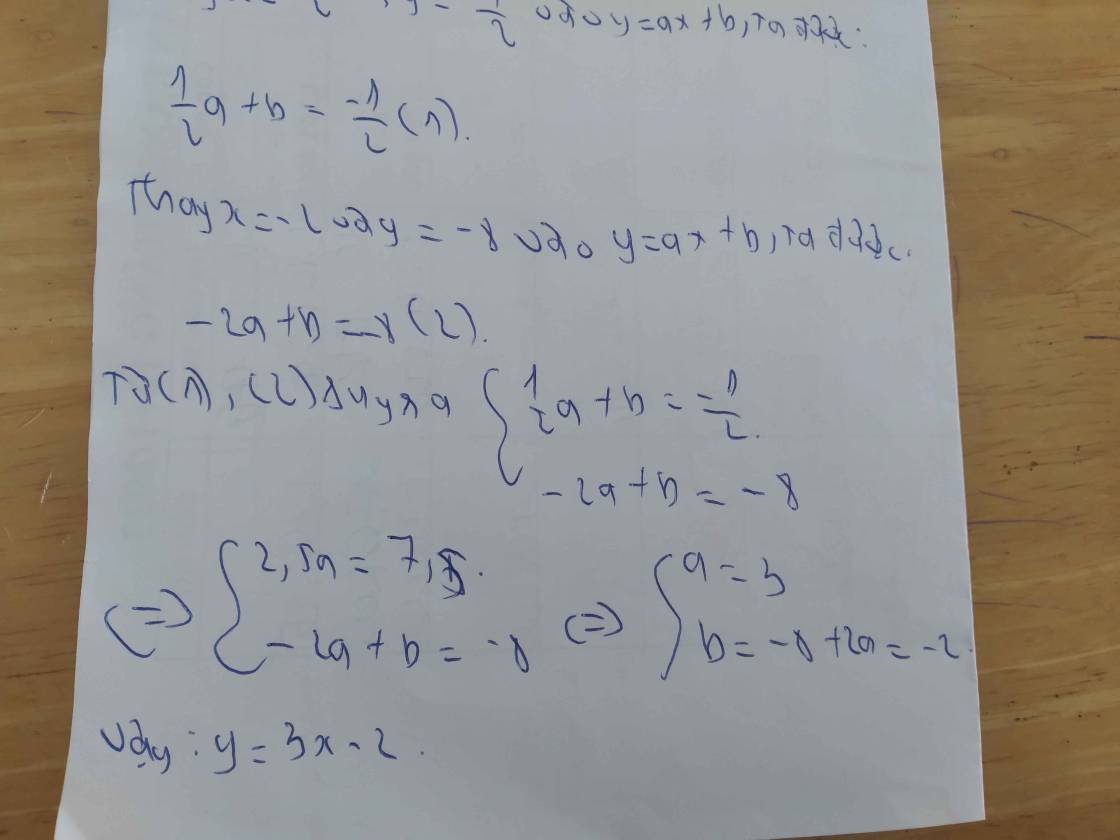 y = -1/2 vào y=ax+b, ta được:
1/2 a + b = -1/2 (1).
Thay x=-2 và y = -8 vào y=ax+b, ta được.
-2a+b=-8 (2).
Từ (1), (2) suy ra { 1/2 a + b = -1/2.
-2a+b = -8
<=> { 2,5a = 7,5. <=> { a = 3
-2a+b = -8 b = -8+2a = -2.
vậy : y = 3x-2.